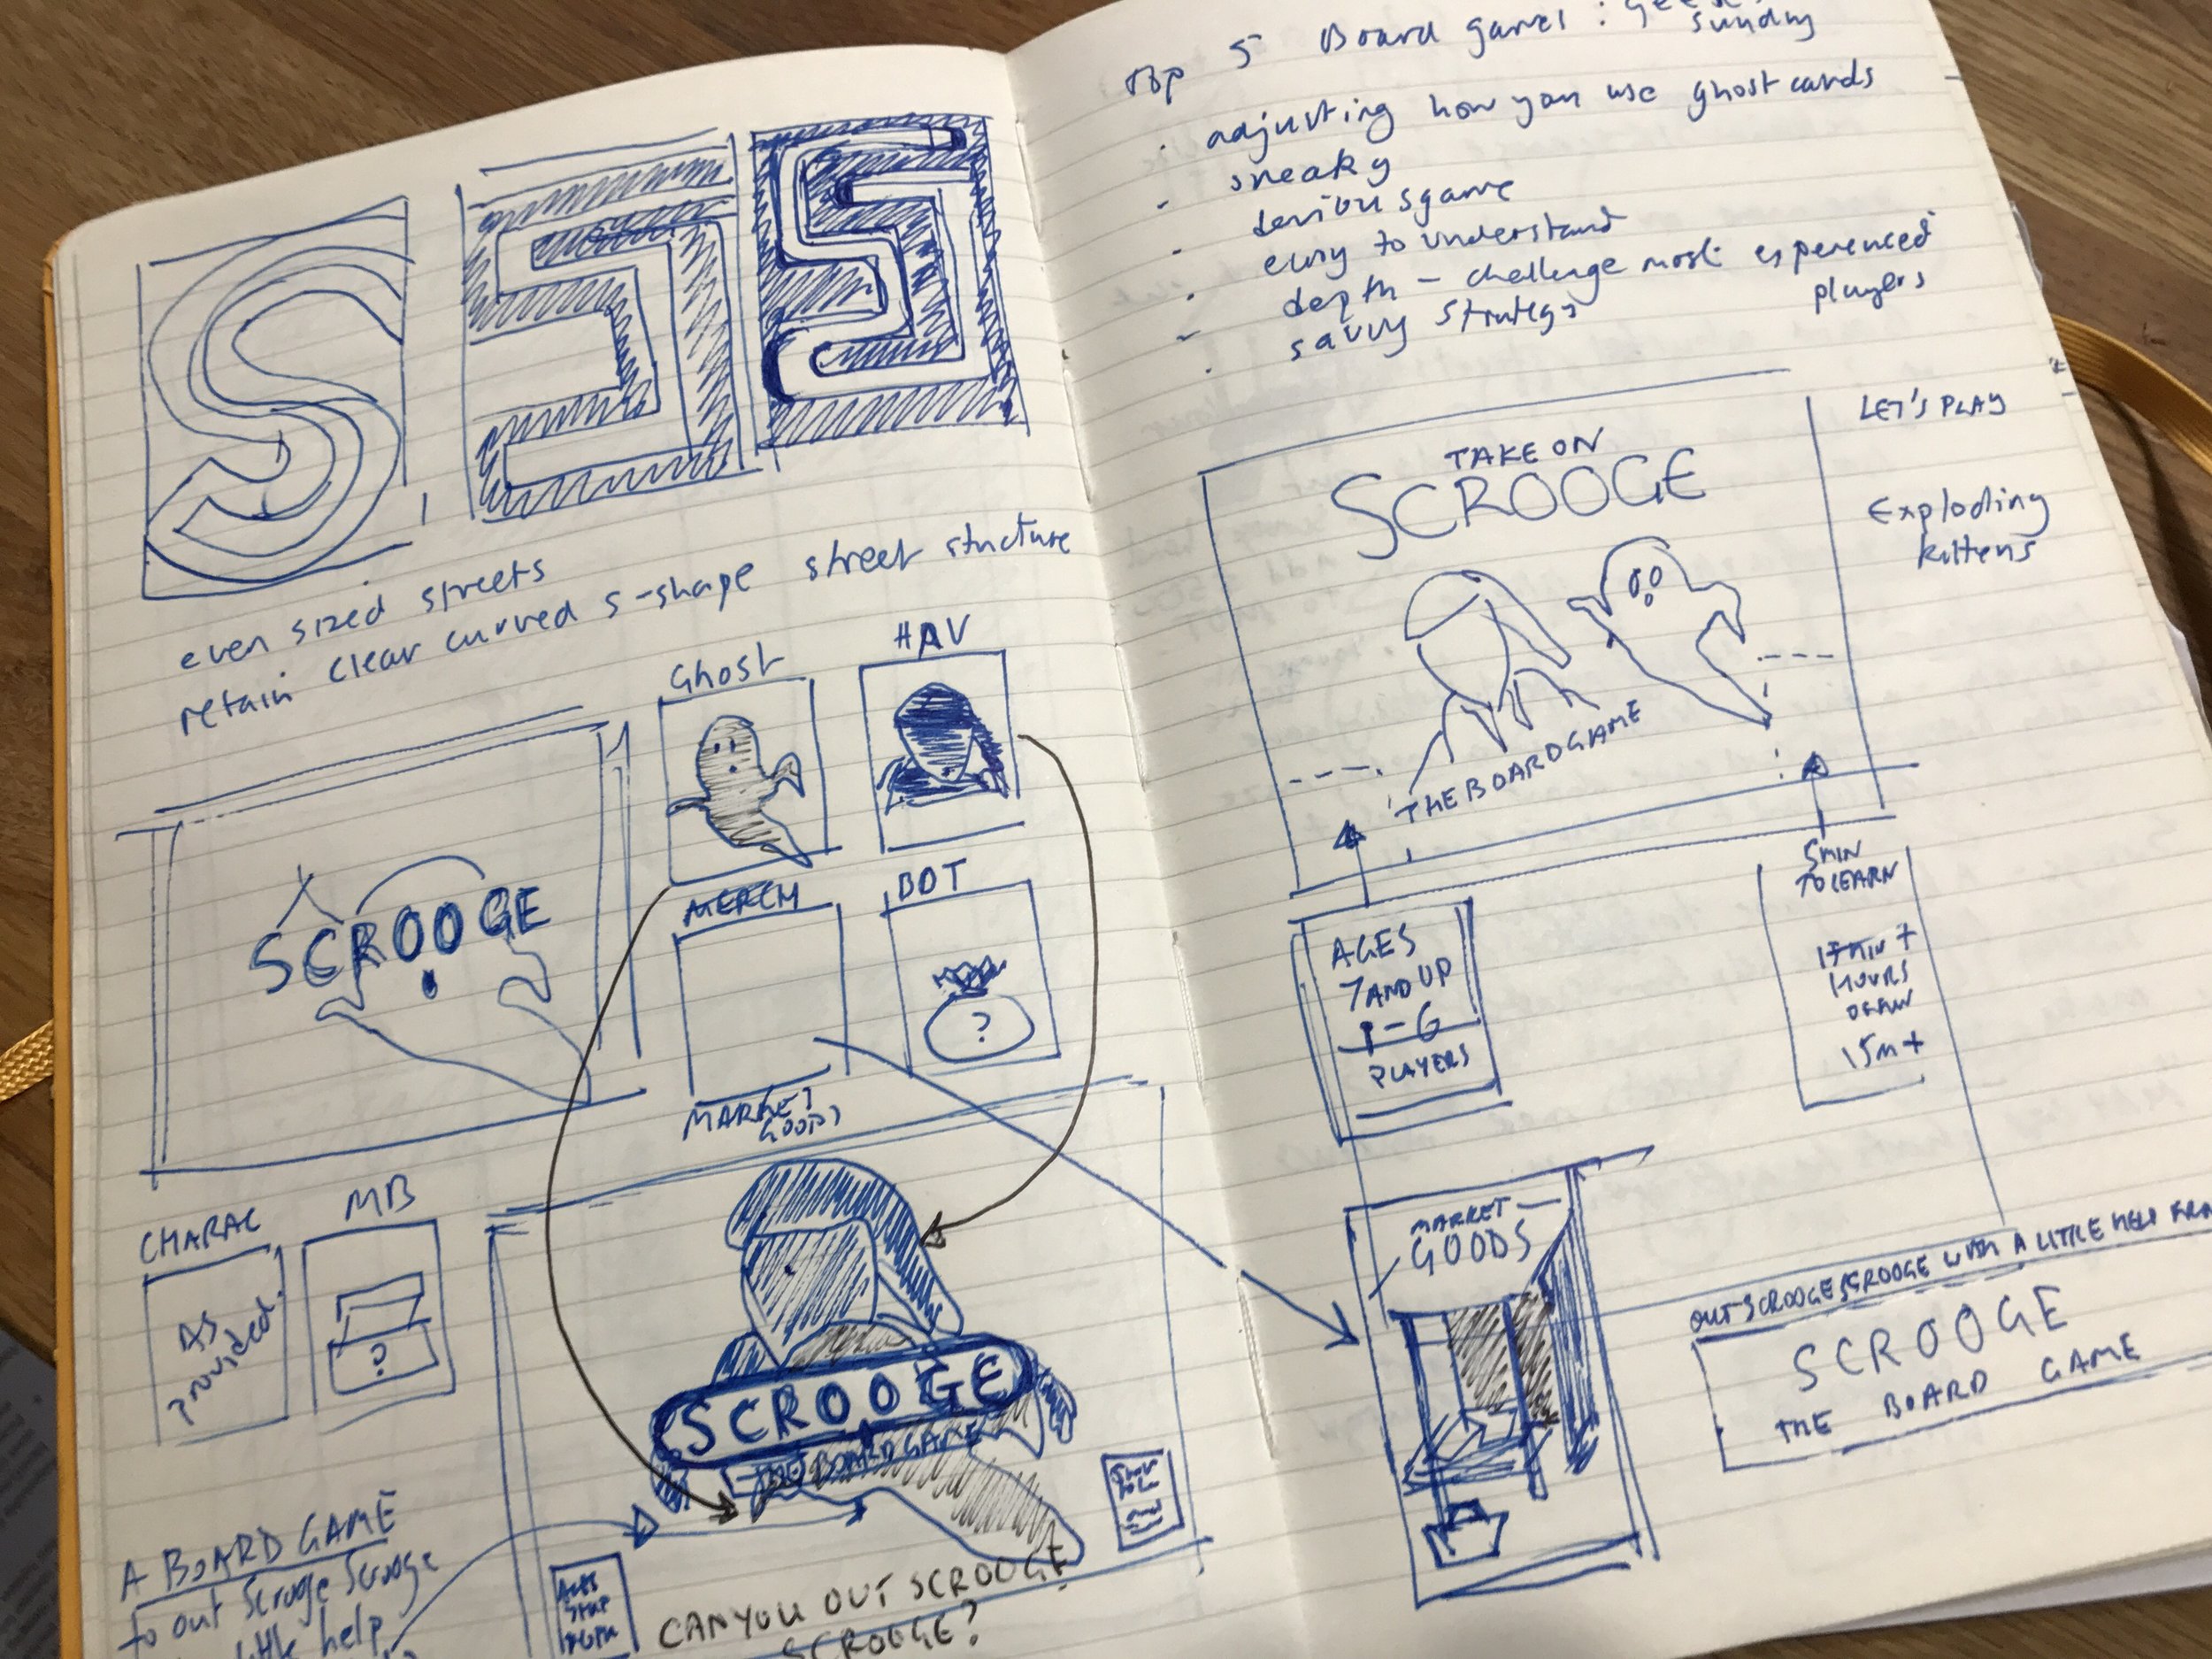 even sized streets
retain clear curved s-shape street structure
Ghost
HAV
SCROOGE
MERCH
BOT
?
MARKET
GOODS
CHARAC
As
provided.
MB
?
SCROOGE
THE BOARD GAME
A BOARD GAME
to out Scrooge Scrooge
help
CAN YOU OUT SCROOGE
SCROOGE?
Top 5 Board games :
Sunday
adjusting how you use ghost cards
sneaky
devious game
easy to understand
depth - challenge most experienced
players
savvy strategy
LET'S PLAY
Exploding
kittens
TAKE ON
SCROOGE
THE BOARD GAME
AGES
7 AND UP
1-6
PLAYERS
5MIN
TO LEARN
HOURS
15m+
MARKET
GOODS
OUTSCROOGE SCROOGE WITH A LITTLE HELP
SCROOGE
THE BOARD GAME